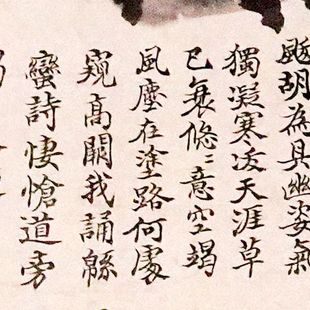 胡為具幽姿氣
獨凝寒凌天涯草
已衰悠〻意空竭
風塵在塗路何處
窺高闕我誦緜
蠻詩悽愴道旁